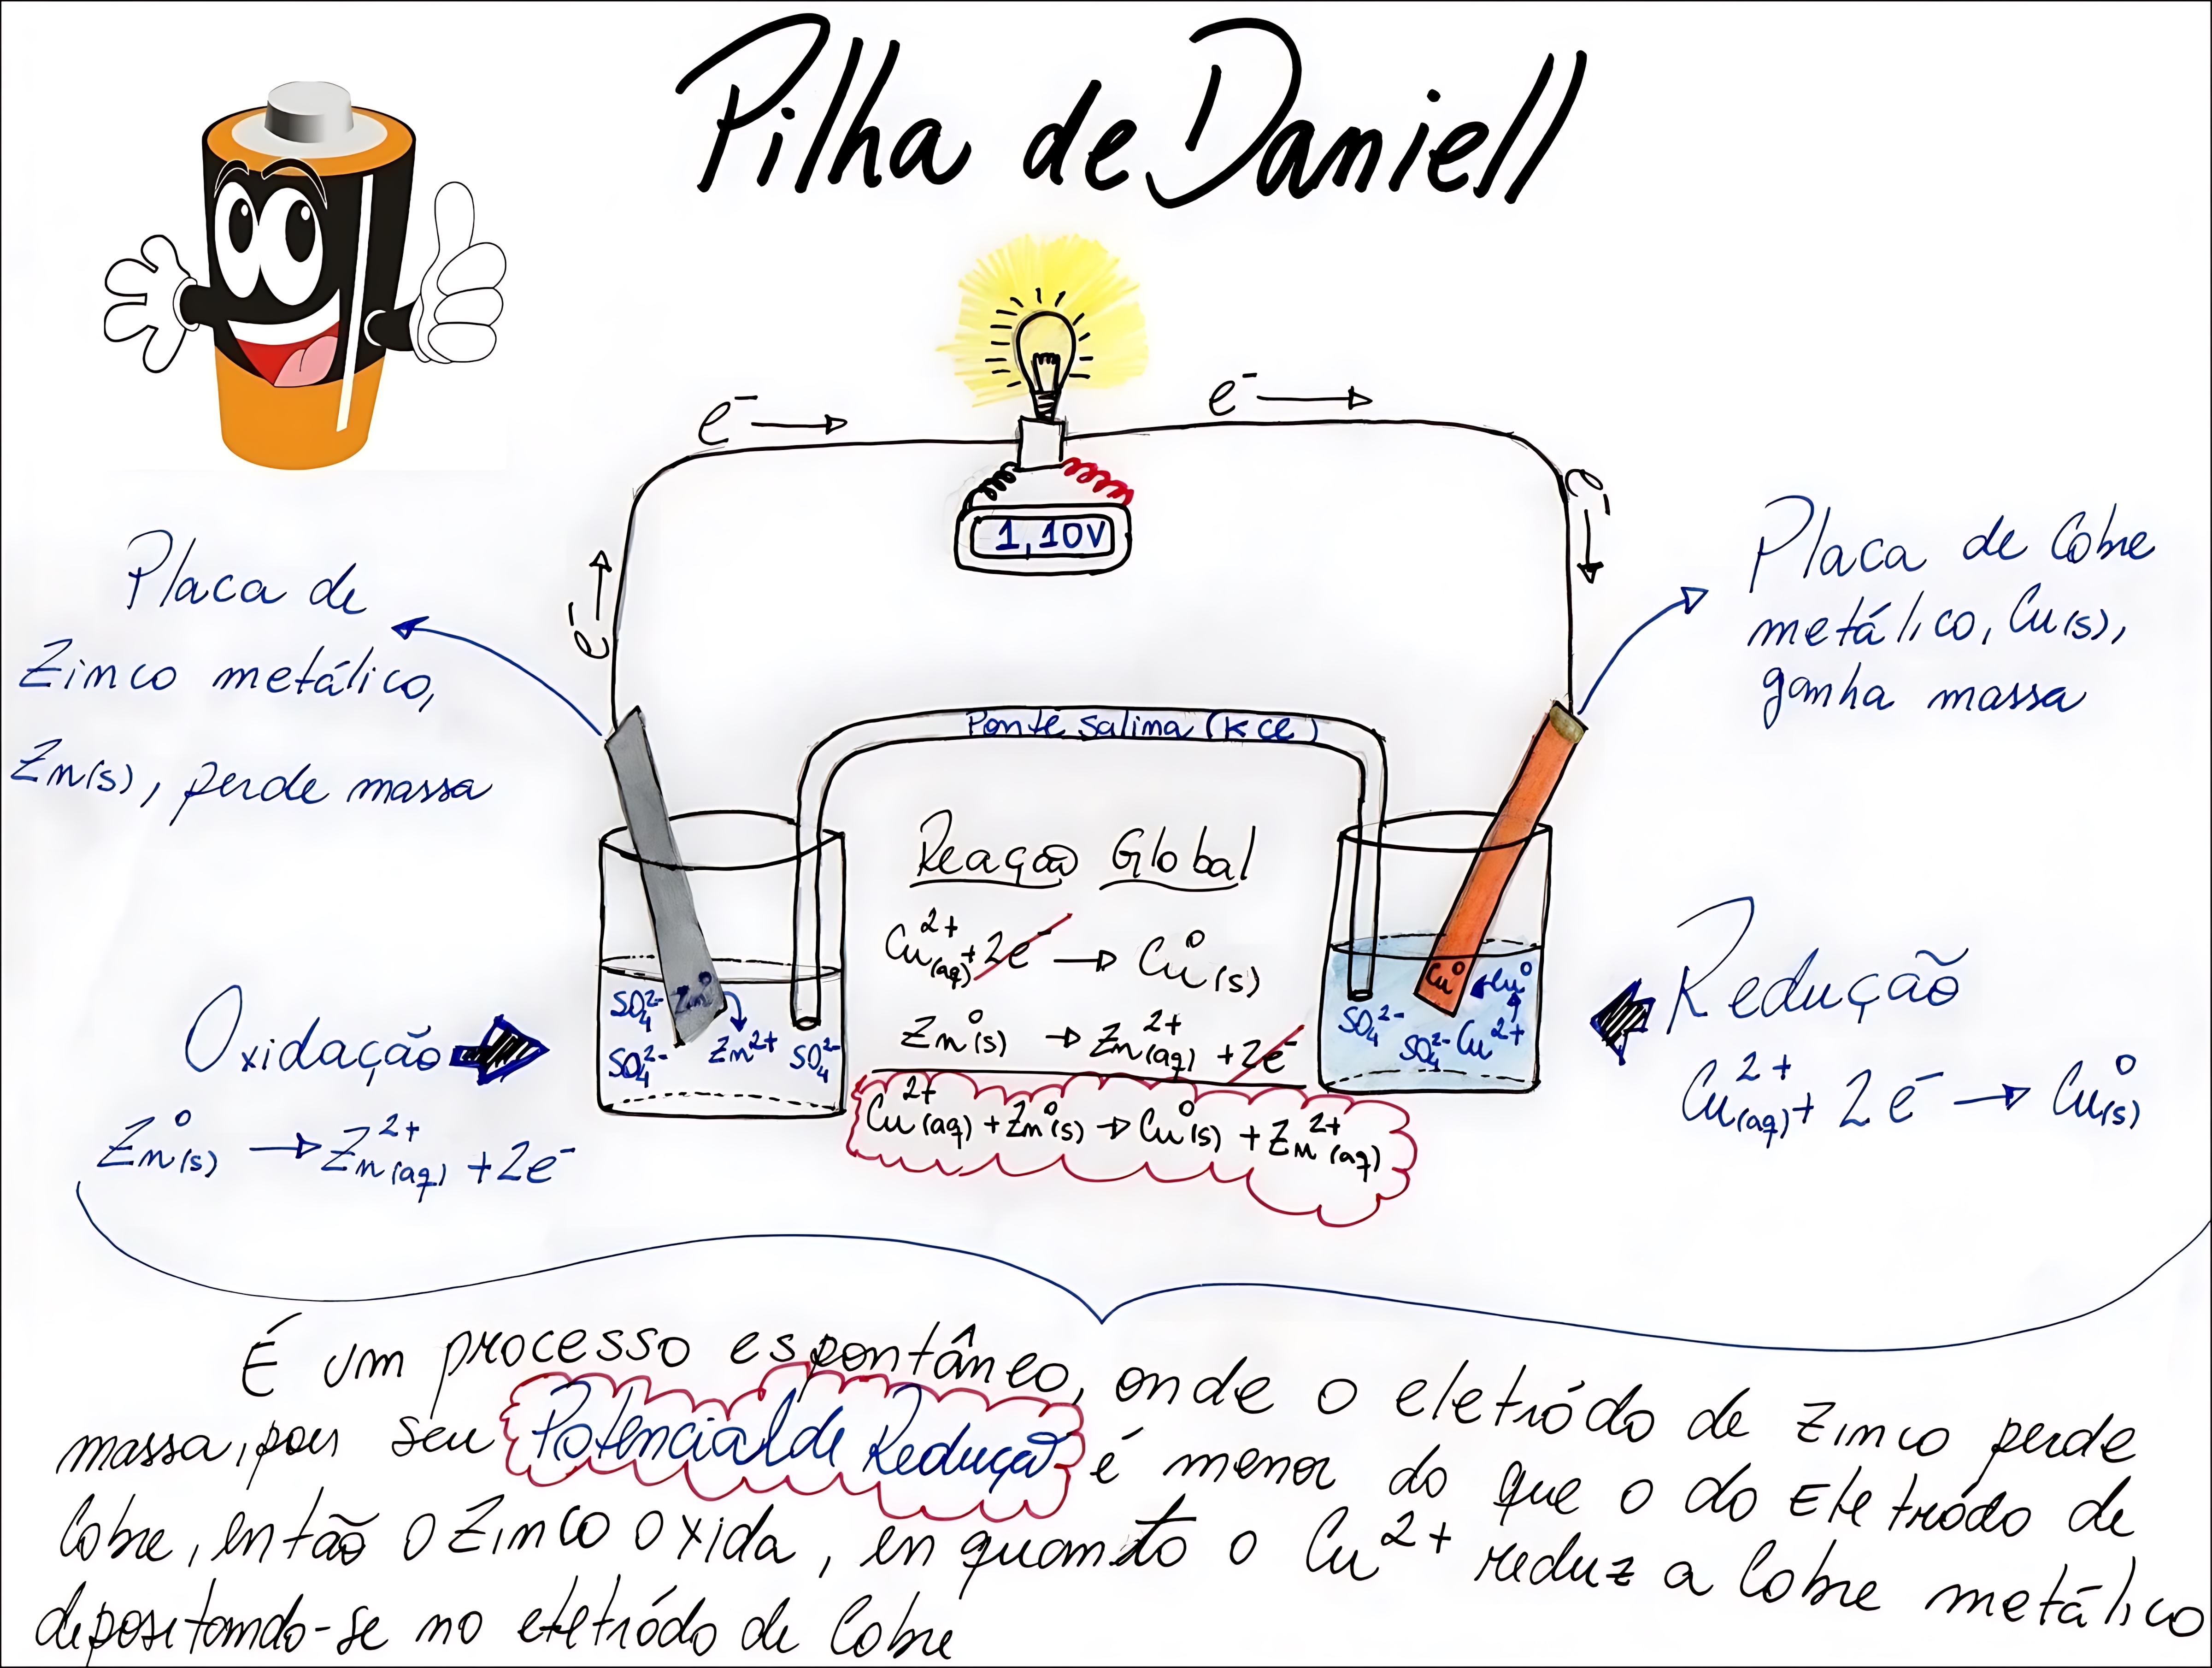 Pilha de Daniell
e⁻ → e⁻ →
e⁻ →
1,10V
e⁻ →
Placa de
Zinco metálico,
Zn(s), perde massa
Placa de Cobre
metálico, Cu(s),
ganha massa
Ponte Salina (KCl)
Reação Global
Cu²⁺(aq) + 2e⁻ → Cu⁰(s)
Zn⁰(s) → Zn²⁺(aq) + 2e⁻
Cu²⁺(aq) + Zn⁰(s) → Cu⁰(s) + Zn²⁺(aq)
SO₄²⁻ Zn⁰
SO₄²⁻ Zn²⁺ SO₄²⁻
Cu⁰ Cu⁰
SO₄²⁻ SO₄²⁻ Cu²⁺
Oxidação
Zn⁰(s) → Zn²⁺(aq) + 2e⁻
Redução
Cu²⁺(aq) + 2e⁻ → Cu⁰(s)
É um processo espontâneo, onde o eletródo de zinco perde
massa, pois seu Potencial de Redução é menor do que o do Eletródo de
Cobre, então o Zinco oxida, enquanto o Cu²⁺ reduz a Cobre metálico
depositando-se no eletródo de Cobre